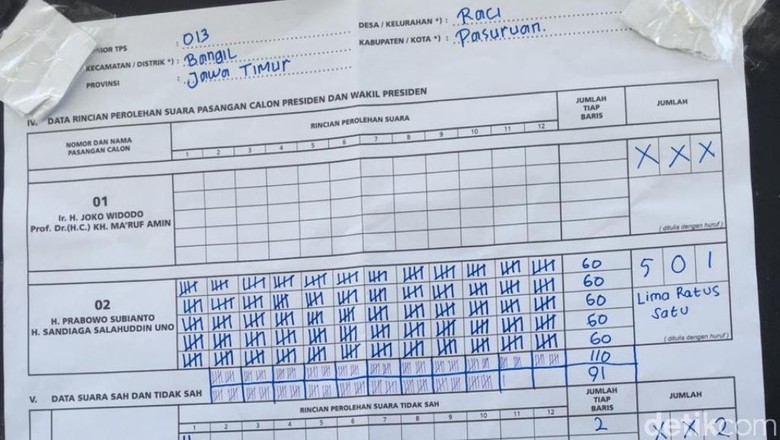 NOMOR TPS : 013
DESA / KELURAHAN *) : Raci
KECAMATAN / DISTRIK *) : Bangil
KABUPATEN / KOTA *) : Pasuruan.
PROVINSI : Jawa Timur
IV. DATA RINCIAN PEROLEHAN SUARA PASANGAN CALON PRESIDEN DAN WAKIL PRESIDEN
NOMOR DAN NAMA PASANGAN CALON
RINCIAN PEROLEHAN SUARA
JUMLAH TIAP BARIS
JUMLAH
1 2 3 4 5 6 7 8 9 10 11 12
01
Ir. H. JOKO WIDODO
Prof. Dr.(H.C.) KH. MA'RUF AMIN
X X X
( ditulis dengan huruf )
02
H. PRABOWO SUBIANTO
H. SANDIAGA SALAHUDDIN UNO
60
60
60
60
60
110
91
5 0 1
Lima Ratus
Satu
( ditulis dengan huruf )
V. DATA SUARA SAH DAN TIDAK SAH
RINCIAN PEROLEHAN SUARA TIDAK SAH
JUMLAH TIAP BARIS
JUMLAH
1 2 3 4 5 6 7 8 9 10 11 12
2
X X 2
detikcom